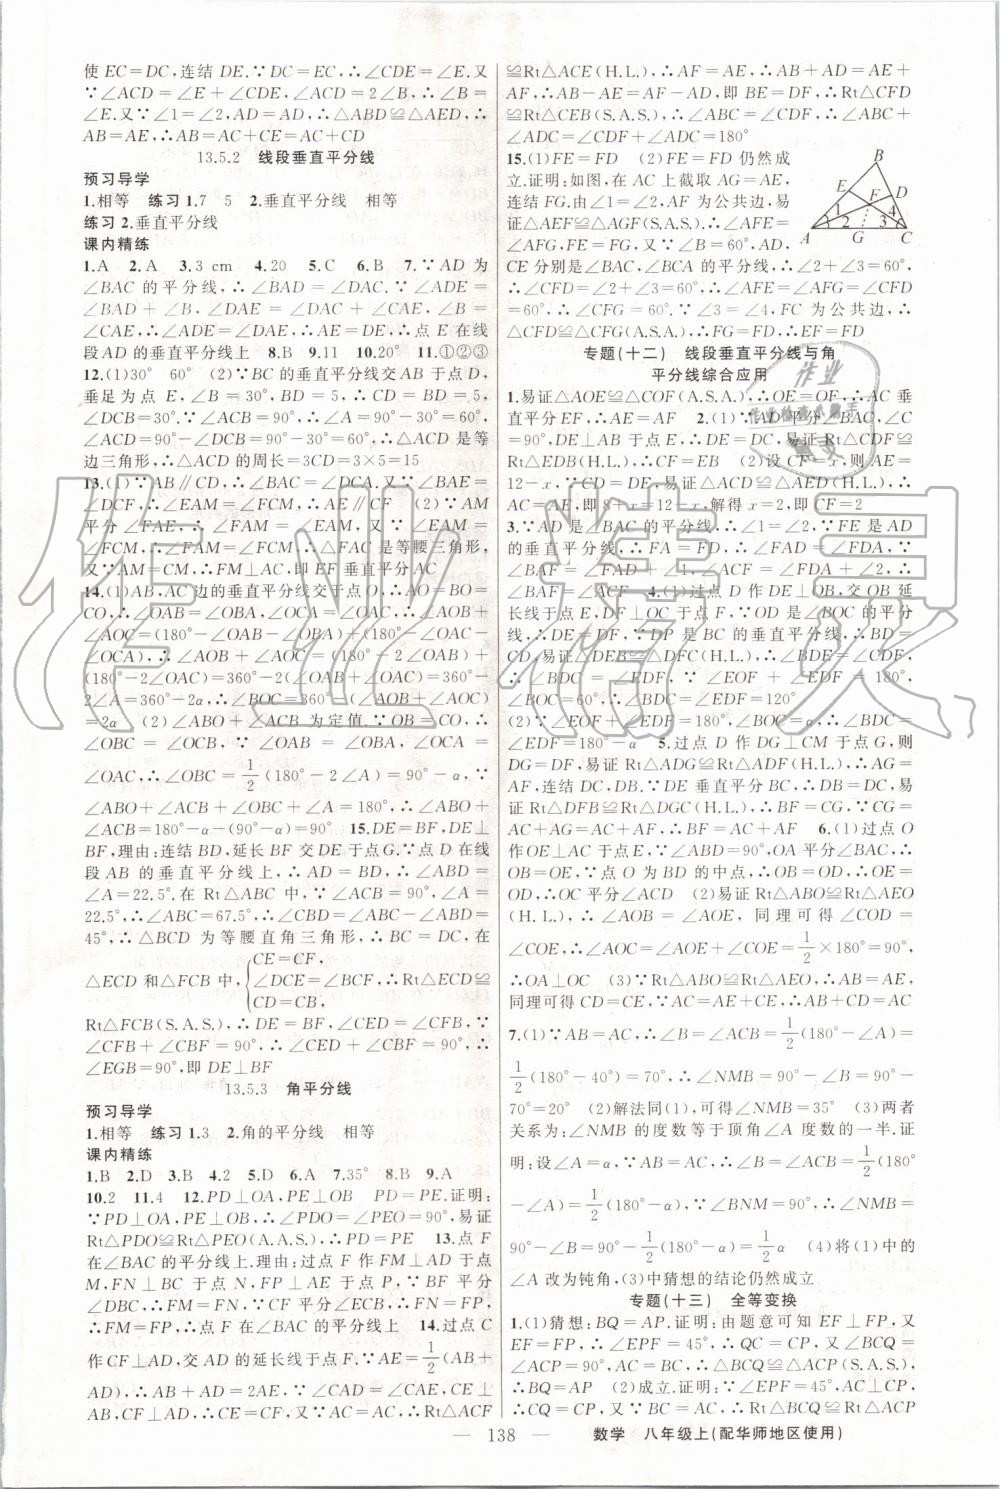 使 EC=DC,连结 DE.∵DC=EC,∴∠CDE=∠E.又
∵∠ACD=∠E+∠CDE,∴∠ACD=2∠B,∴∠B=
∠E.又∵∠1=∠2,AD=AD,∴△ABD≌△AED,∴
AB=AE,∴AB=AC+CE=AC+CD
13.5.2 线段垂直平分线
预习导学
1.相等 练习 1.7 5 2.垂直平分线 相等
练习 2.垂直平分线
课内精练
1.A 2.A 3.3 cm 4.20 5.C 6.B 7.∵AD 为
∠BAC 的平分线,∴∠BAD=∠DAC.∵∠ADE=
∠BAD+∠B,∠DAE=∠DAC+∠CAE,∠B=
∠CAE,∴∠ADE=∠DAE,∴AE=DE,∴点 E 在线
段 AD 的垂直平分线上 8.B 9.11 10.20° 11.①②③
12.(1)30° 60° (2)∵BC 的垂直平分线交 AB 于点 D,
垂足为点 E,∠B=30°,BD=5,∴CD=BD=5,
∠DCB=∠B=30°.∵∠ACB=90°,∴∠A=90°-30°=60°,
∠ACD=90°-∠DCB=90°-30°=60°,∴△ACD 是等
边三角形,∴△ACD 的周长=3CD=3×5=15
13.(1)∵AB∥CD,∴∠BAC=∠DCA.又∵∠BAE=
∠DCF,∴∠EAM=∠FCM,∴AE∥CF (2)∵AM
平分∠FAE,∴∠FAM=∠EAM.又∵∠EAM=
∠FCM,∴∠FAM=∠FCM,∴△FAC 是等腰三角形,
又∵AM=CM,∴FM⊥AC,即 EF 垂直平分 AC
14.(1)AB,AC 边的垂直平分线交于点 O,∴AO=BO=
CO,∴∠OAB=∠OBA,∠OCA=∠OAC,∴∠AOB+
∠AOC=(180°-∠OAB-∠OBA)+(180°-∠OAC-
∠OCA),∴∠AOB+∠AOC=(180°-2∠OAB)+
(180°-2∠OAC)=360°-2(∠OAB+∠OAC)=360°-
2∠A=360°-2α,∴∠BOC=360°-(∠AOB+∠AOC)
=2α (2)∠ABO+∠ACB 为定值.∵OB=CO,∴
∠OBC=∠OCB,∵∠OAB=∠OBA,∠OCA=
∠OAC,∴∠OBC=1/2(180°-2∠A)=90°-α,∵
∠ABO+∠ACB+∠OBC+∠A=180°,∴∠ABO+
∠ACB=180°-α-(90°-α)=90° 15.DE=BF,DE⊥
BF,理由:连结 BD,延长 BF 交 DE 于点 G.∵点 D 在线
段 AB 的垂直平分线上,∴AD=BD,∴∠ABD=
∠A=22.5°.在 Rt△ABC 中,∵∠ACB=90°,∠A=
22.5°,∴∠ABC=67.5°,∴∠CBD=∠ABC-∠ABD=
45°,∴△BCD 为等腰直角三角形,∴BC=DC,在
△ECD 和△FCB 中,{CE=CF,∠DCE=∠BCF,CD=CB,∴Rt△ECD≌
Rt△FCB(S.A.S.),∴DE=BF,∠CED=∠CFB,∵
∠CFB+∠CBF=90°,∴∠CED+∠CBF=90°,∴
∠EGB=90°,即 DE⊥BF
13.5.3 角平分线
预习导学
1.相等 练习 1.3 2.角的平分线 相等
课内精练
1.B 2.D 3.B 4.2 5.D 6.A 7.35° 8.B 9.A
10.2 11.4 12.PD⊥OA,PE⊥OB PD=PE.证明:
∵PD⊥OA,PE⊥OB,∴∠PDO=∠PEO=90°,易证
Rt△PDO≌Rt△PEO(A.A.S.),∴PD=PE 13.点 F
在∠BAC 的平分线上.理由:过点 F 作 FM⊥AD 于点
M,FN⊥BC 于点 N,FP⊥AE 于点 P,∵BF 平分
∠DBC,∴FM=FN,∵CF 平分∠ECB,∴FN=FP,
∴FM=FP,∴点 F 在∠BAC 的平分线上 14.过点 C
作 CF⊥AD,交 AD 的延长线于点 F.∵AE=1/2(AB+
AD),∴AB+AD=2AE,∵∠CAD=∠CAE,CE⊥
AB,CF⊥AD,∴CE=CF,∵AC=AC,∴Rt△ACF
≌Rt△ACE(H.L.),∴AF=AE,∴AB+AD=AE+
AF,∴AB-AE=AF-AD,即 BE=DF,∴Rt△CFD
≌Rt△CEB(S.A.S.),∴∠ABC=∠CDF,∴∠ABC+
∠ADC=∠CDF+∠ADC=180°
15.(1)FE=FD (2)FE=FD 仍然成
立.证明:如图,在 AC 上截取 AG=AE,
连结 FG.由∠1=∠2,AF 为公共边,易
证△AEF≌△AGF(S.A.S.),∴∠AFE=
∠AFG,FE=FG,又∵∠B=60°,AD,
CE 分别是∠BAC,∠BCA 的平分线,∴∠2+∠3=60°,
∴∠CFD=∠2+∠3=60°,∴∠AFE=∠AFG=∠CFD
=60°,∴∠CFG=60°.∵∠3=∠4,FC 为公共边,∴
△CFD≌△CFG(A.S.A.),∴FG=FD,∴EF=FD
B
E F D
1 4
2 3
A G C
专题(十二) 线段垂直平分线与角
平分线综合应用
1.易证△AOE≌△COF(A.S.A.),∴OE=OF,∴AC 垂
直平分 EF,∴AE=AF 2.(1)∵AD 平分∠BAC,∠C
=90°,DE⊥AB 于点 E,∴DC=DE,易证 Rt△CDF≌
Rt△EDB(H.L.),∴CF=EB (2)设 CF=x,则 AE=
12-x,∵CD=DE,易证 Rt△ACD≌△AED(H.L.),∴
AC=AE,即 8+x=12-x,解得 x=2,即 CF=2
3.∵AD 是∠BAC 的平分线,∴∠1=∠2,∵FE 是 AD
的垂直平分线,∴FA=FD,∴∠FAD=∠FDA,∵
∠BAF=∠FAD+∠1,∠ACF=∠FDA+∠2,∴
∠BAF=∠ACF 4.(1)过点 D 作 DE⊥OB,交 OB 延
长线于点 E,DF⊥OC 于点 F,∵OD 是∠BOC 的平分
线,∴DE=DF,∵DP 是 BC 的垂直平分线,∴BD=
CD,易证△DEB≌△DFC(H.L.),∴∠BDE=∠CDF,
∴∠BDC=∠EDF,∵∠EOF+∠EDF=180°,
∠BOC=60°,∴∠BDC=∠EDF=120°
(2)∵∠EOF+∠EDF=180°,∠BOC=α,∴∠BDC=
∠EDF=180°-α 5.过点 D 作 DG⊥CM 于点 G,则
DG=DF,易证 Rt△ADG≌Rt△ADF(H.L.),∴AG=
AF,连结 DC,DB,∵DE 垂直平分 BC,∴DB=DC,易
证 Rt△DFB≌Rt△DGC(H.L.),∴BF=CG,∵CG=
AC+AG=AC+AF,∴BF=AC+AF 6.(1)过点 O
作 OE⊥AC 于点 E,∵∠ABD=90°,OA 平分∠BAC,∴
OB=OE,∵点 O 为 BD 的中点,∴OB=OD,∴OE=
OD,∴OC 平分∠ACD (2)易证 Rt△ABO≌Rt△AEO
(H.L.),∴∠AOB=∠AOE,同理可得∠COD=
∠COE,∴∠AOC=∠AOE+∠COE=1/2×180°=90°,
∴OA⊥OC (3)∵Rt△ABO≌Rt△AEO,∴AB=AE,
同理可得 CD=CE,∵AC=AE+CE,∴AB+CD=AC
7.(1)∵AB=AC,∴∠B=∠ACB=1/2(180°-∠A)=
1/2(180°-40°)=70°,∴∠NMB=90°-∠B=90°-
70°=20° (2)解法同(1),可得∠NMB=35° (3)两者
关系为:∠NMB 的度数等于顶角∠A 度数的一半.证
明:设∠A=α,∵AB=AC,∴∠B=∠ACB=1/2(180°
-∠A)=1/2(180°-α),∵∠BNM=90°,∴∠NMB=
90°-∠B=90°-1/2(180°-α)=1/2α (4)将(1)中的
∠A 改为钝角,(3)中猜想的结论仍然成立
专题(十三) 全等变换
1.(1)猜想:BQ=AP.证明:由题意可知 EF⊥FP,又
EF=FP,∴∠EPF=45°,∴QC=CP,又∠BCQ
=∠ACP=90°,AC=BC,∴△BCQ≌△ACP(S.A.S.),
∴BQ=AP (2)成立.证明:∵∠EPF=45°,AC⊥CP,
∴CQ=CP,又∵BC=AC,∴Rt△BCQ≌Rt△ACP
— 138 — 数学 八年级上(配华师地区使用)
作业精灵
作业